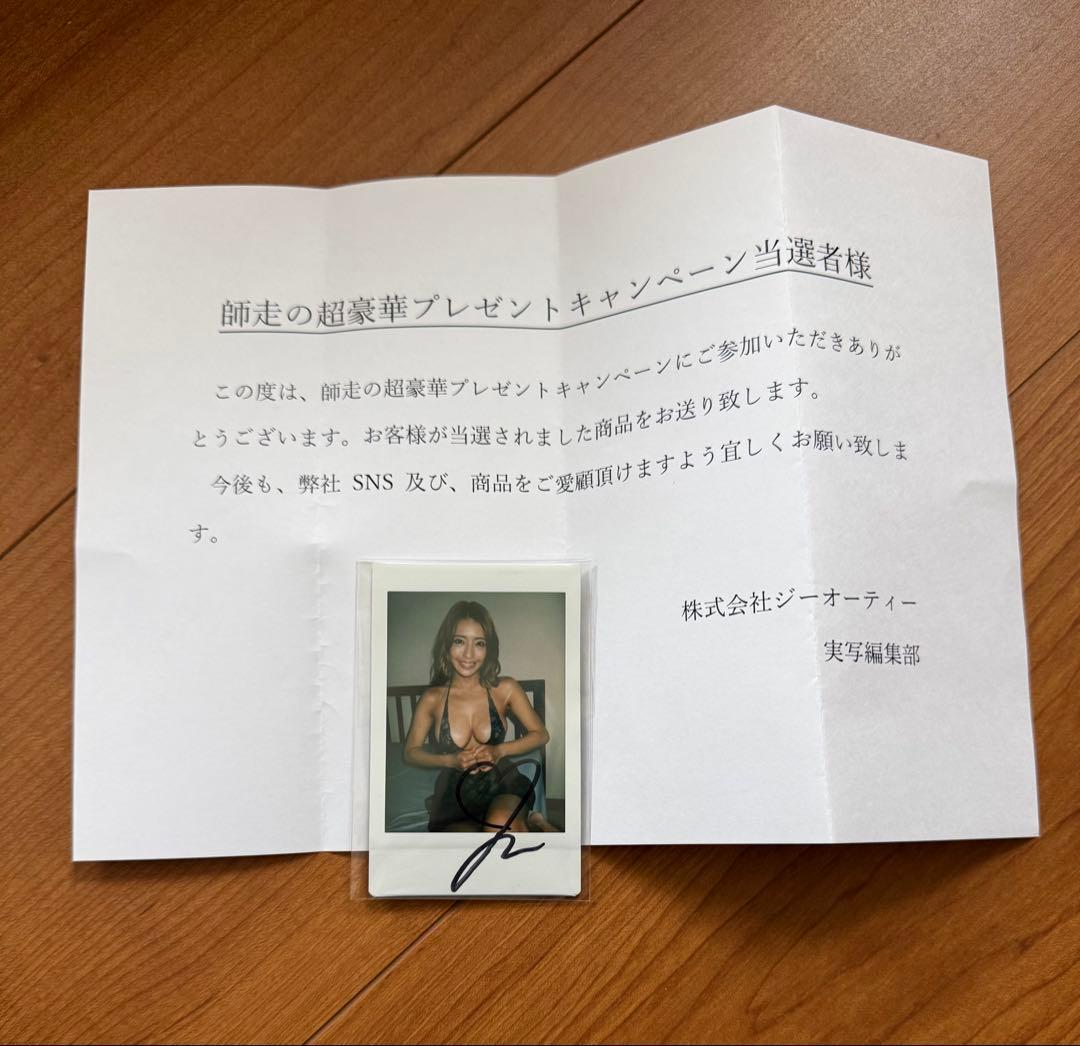 師走の超豪華プレゼントキャンペーン当選者様
この度は、師走の超豪華プレゼントキャンペーンにご参加いただきありが
とうございます。お客様が当選されました商品をお送り致します。
今後も、弊社 SNS 及び、商品をご愛顧頂けますよう宜しくお願い致しま
す。
株式会社ジーオーティー
実写編集部